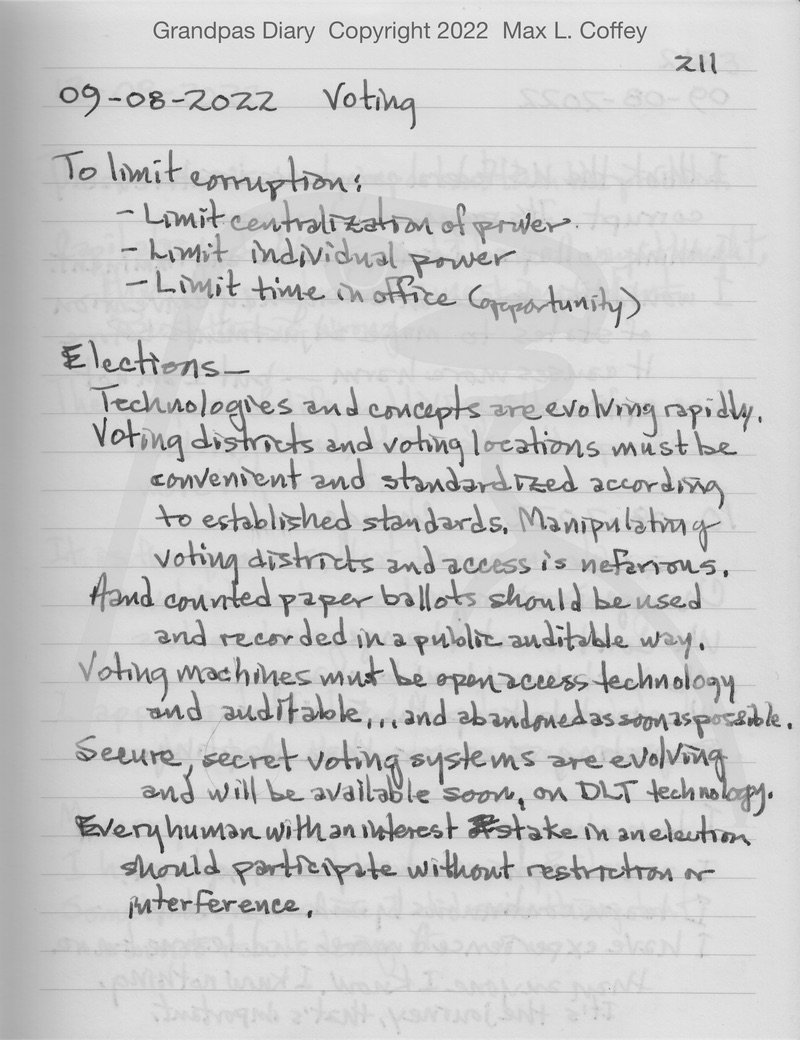 Grandpas Diary Copyright 2022 Max L. Coffey
211
09-08-2022 Voting
To limit corruption:
- Limit centralization of power.
- Limit individual power
- Limit time in office (opportunity)
Elections-
Technologies and concepts are evolving rapidly.
Voting districts and voting locations must be
convenient and standardized according
to established standards. Manipulating
voting districts and access is nefarious.
Hand counted paper ballots should be used
and recorded in a public auditable way.
Voting machines must be open access technology
and auditable...and abandoned as soon as possible.
Secure, secret voting systems are evolving
and will be available soon, on DLT technology.
Every human with an interest stake in an election
should participate without restriction or
interference.